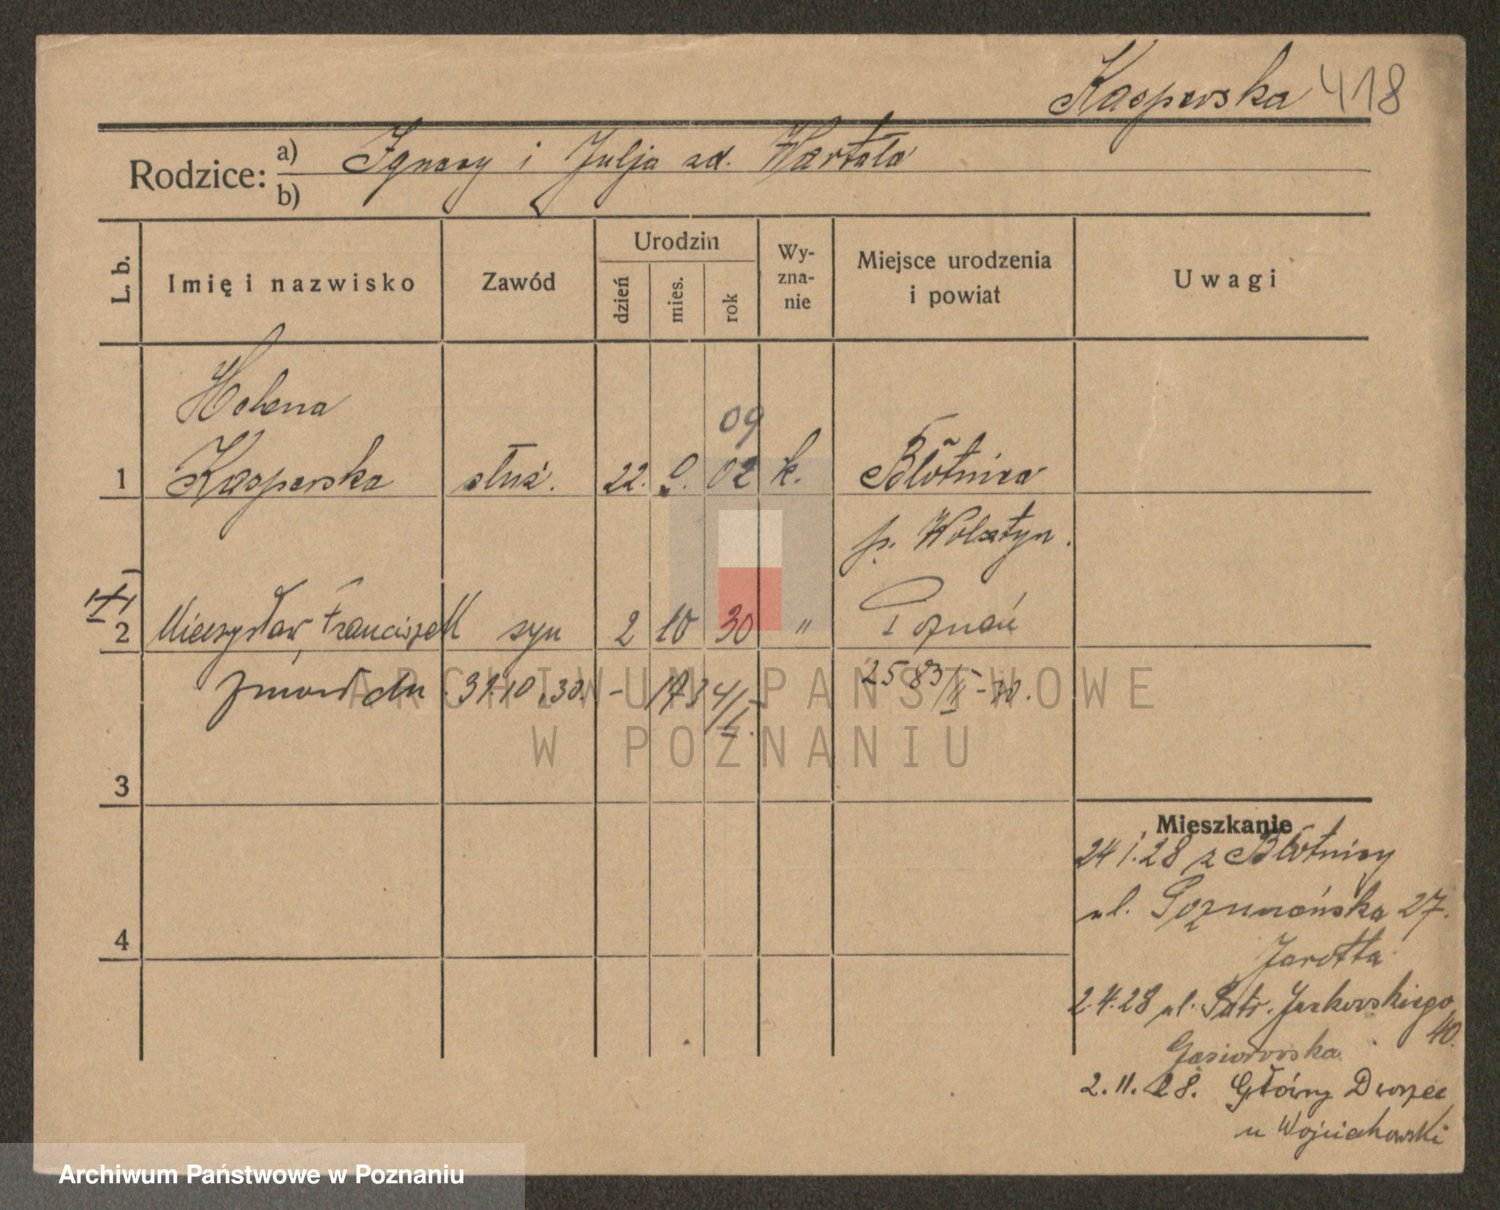 Kasperska 418
Rodzice: a) Ignacy i Julja zd. Wartala
b)
L. b. Imię i nazwisko Zawód Urodzin dzień mies. rok Wy-zna-nie Miejsce urodzenia i powiat Uwagi
Helena
09
1 Kasperska służ. 22. 02 k. Błotnica
p. Wolsztyn.
2 Mieczysław, Franciszek syn 2 10 30 " Poznań
zmarł dn. 31.10.30. - 173
3
4
Mieszkanie
24 1.28 z Błotnicy
ul. Poznańska 27.
Jarotta
2.4.28 ul. Patr. Jackowskiego
40.
Gąsiorowska
2.11.28. Główny Dworzec
u Wojciechowski
ARCHIWUM PAŃSTWOWE
W POZNANIU
Archiwum Państwowe w Poznaniu